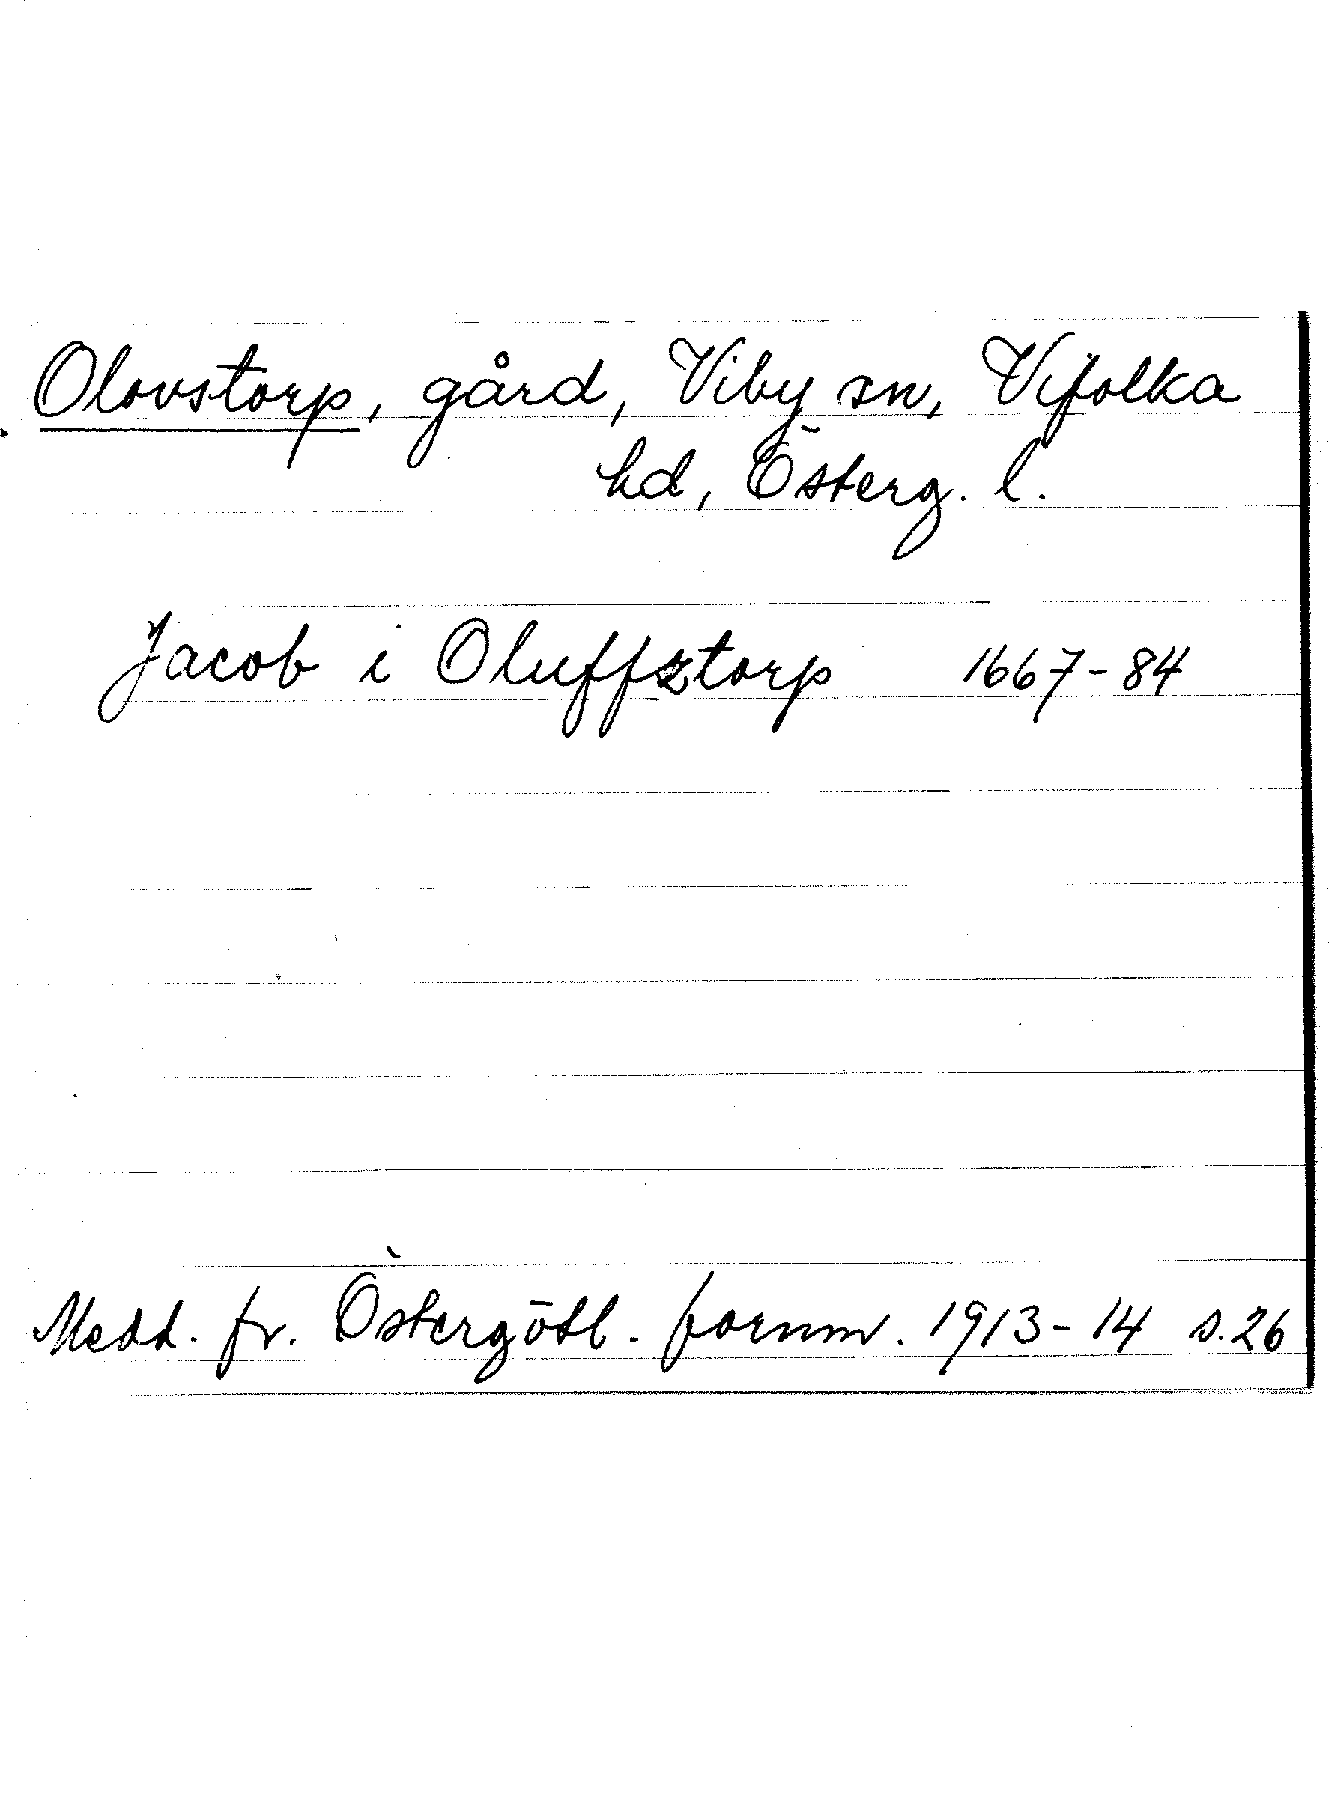 Olovstorp, gård, Viby sn, Vifolka
hd, Österg. l.
Jacob i Oluffztorp 1667-84
Medd. fr. Östergötl. fornm. 1913-14 s.26